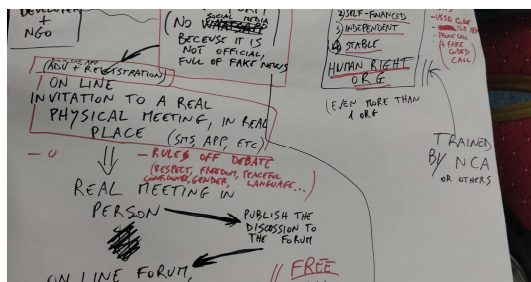 DEVELOPER
+
NGO
(NO WHATSAPP SOCIAL MEDIA
BECAUSE IT IS
NOT OFFICIAL,
FULL OF FAKE NEWS
(ADV + REGISTRATION)
ON LINE
INVITATION TO A REAL
PHYSICAL MEETING, IN REAL
PLACE (SMS, APP, ETC)
— RULES OFF DEBATE
(RESPECT, FREEDOM, PEACEFUL
CONFIDENCE, GENDER, LANGUAGE...)
REAL MEETING IN
PERSON
PUBLISH THE
DISCUSSION TO
THE FORUM
ON LINE FORUM,
// FREE
2) SELF-FINANCED
3) INDEPENDENT
4) STABLE
HUMAN RIGHT
ORG
(EVEN MORE THAN
1 ORG
- USSD CODE
APP
- PHONE CALL
(+ FAKE
CODED
CALL)
TRAINED
BY NCA
OR OTHERS